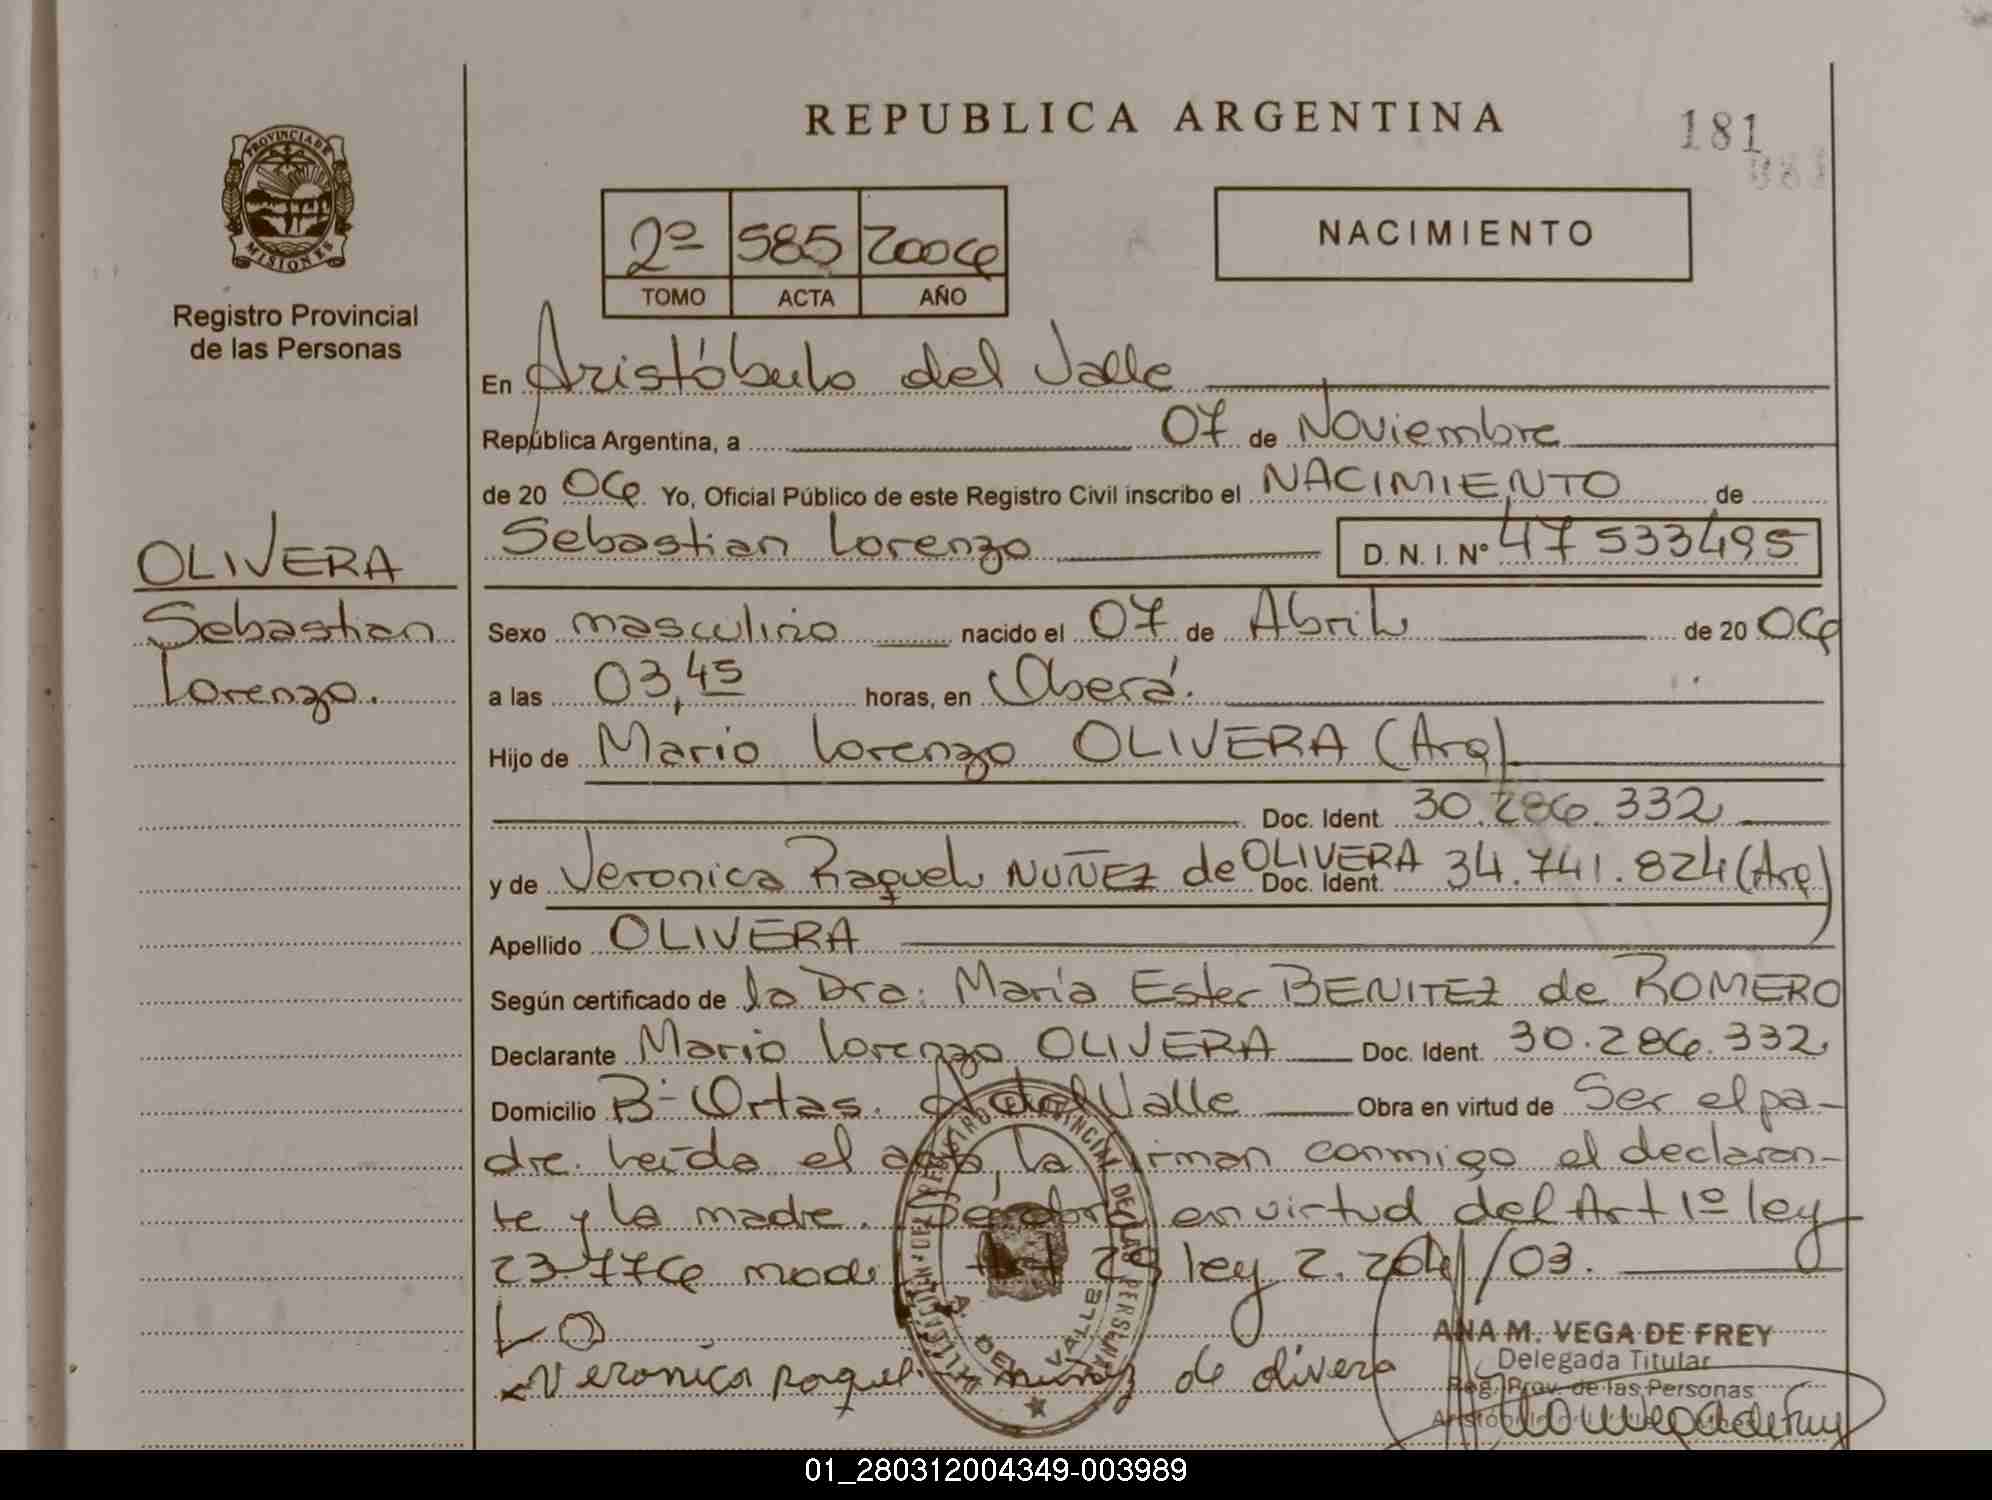 REPUBLICA ARGENTINA
181
PROVINCIA DE
MISIONES
Registro Provincial
de las Personas
2º 585 2006
TOMO ACTA AÑO
NACIMIENTO
En Aristóbulo del Valle
República Argentina, a 07 de Noviembre
de 20 06 Yo, Oficial Público de este Registro Civil inscribo el NACIMIENTO de
Sebastian Lorenzo D. N. I. Nº 47533495
OLIVERA
Sebastian
Lorenzo.
Sexo masculino nacido el 07 de Abril de 20 06
a las 03,45 horas, en Oberá.
Hijo de Mario Lorenzo OLIVERA (Arg)
Doc. Ident. 30.286.332
y de Veronica Raquel NUÑEZ de OLIVERA Doc. Ident. 34.741.824 (Arg)
Apellido OLIVERA
Según certificado de la Dra: María Ester BENITEZ de ROMERO
Declarante Mario Lorenzo OLIVERA Doc. Ident. 30.286.332.
Domicilio B- Ortas. A del Valle Obra en virtud de Ser el pa-
dre. Leída el acta, la firman conmigo el declaran-
te y la madre. Se obra en virtud del Art 1º ley
23.776 modif Art 29 ley 2.264/03.
LO
Veronica raquel nuñez de olivera
ANA M. VEGA DE FREY
Delegada Titular
Reg. Prov. de las Personas
DIRECCION DEL REGISTRO PROVINCIAL DE LAS PERSONAS
A. DEL VALLE
01_280312004349-003989